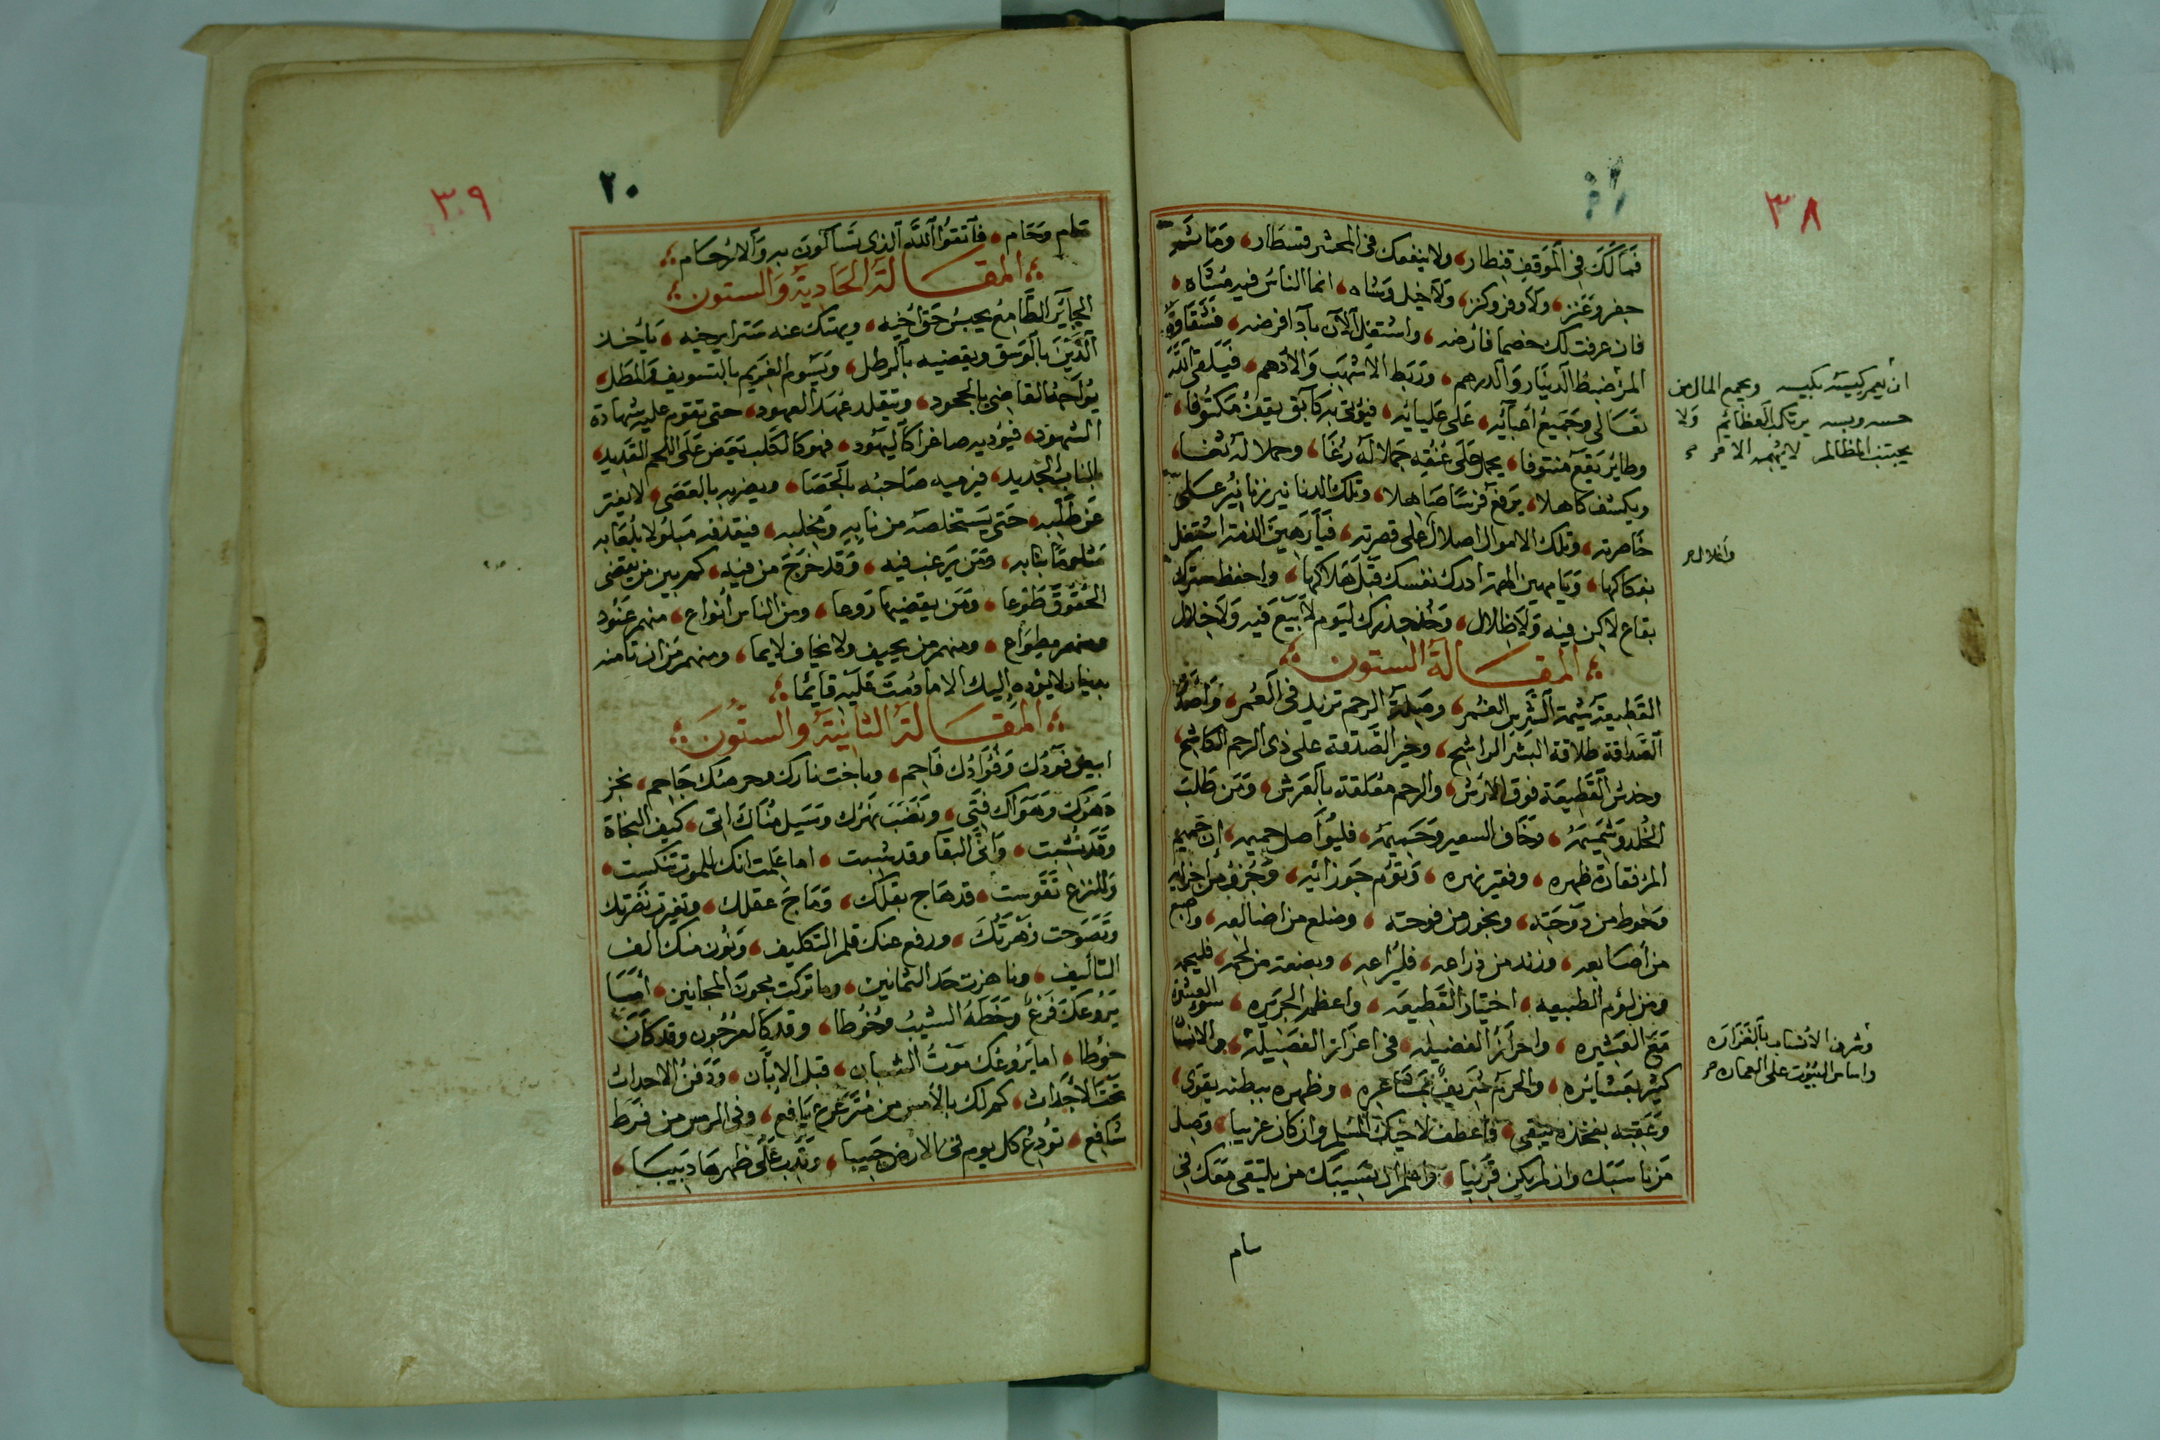 ٣٨
فمالك في الموقف قنطار ولا ينفعك في المحشر قسطار وما ثم
جفر وعنز ولا وفر وكنز ولا خيل وشاه انما الناس فيه مشاه
فان عرفت لك خصما فارضه واستقل الآن بادا فرضه فشقاوة
المرء ضبط الدينار والدرهم وربط الاشهب والادهم فيلقى الله
تعالى وجميع احبائه على عليائه فيؤتى به كآبق يقف مكتوفا
وطائر يقع منتوفا يحمل على عنقه جملا له رغا وحملا له ثغا
ويكشف كاهلا يرفع فرسا صاهلا وتلك الدنانير زنانير على
خاصرته وتلك الاموال اصلال على قصرته فيا رهين الذمة استعمل
بفكاكها ويا مهين الهمة ادرك نفسك قبل هلاكها واحفظ
بقاع لا كن فيه ولا ظلال وخذ حذرك ليوم لا بيع فيه ولا خلال
المقالة الستون
القطيعة شيمة الشرس الغمر وصلة الرحم تزيد في العمر
الصداقة طلاقة البشر الراشح وخير الصدقة على ذي الرحم الكاشح
وخدش القطيعة فوق الارش والرحم معلقة بالعرش ومن طلب
الخلد وشميمه وخاف السعير وحميمه فليؤاصل حميمه ان حميم
المرء فقارة ظهره وفقير نهره وتؤم جوزائه وجزؤ من اجزائه
وخوط من دوحته وبخور من فوحته وضلع من اضالعه واصبع
من أصابعه وزند من ذراعه فليراعه وبضعة من لحمه فليحمه
ومن لؤم الطبيعه اختيار القطيعه واعظم الجريره سوء العشرة
مع العشيره واحراز الفضيله في اعزاز الفصيلة والانسان
كثير بعشائره والحرم شريف بمشاعره وظهره ببطنه يقوى
وعقبه بفخذه يبقى فاعطف لاخيك المسلم وان كان غريبا وصل
من ناسبك وان لم يكن قريبا واعلم ان نسيبك من يلتقى معك في
سام
ان يعمر كيسه بكيسه ويجمع المال من
حسه وبسه يرتكب العظائم ولا
يجتنب المظالم لا يهمه الا
واغلال
وشرف الأنساب بالغزارة
واساس البيوت على العماره
٣٩
٢٠
سام وحام فاتقوا الله الذي تساءلون به والارحام
المقالة الحادية والستون
الجائر الطامع يحبس حق اخيه ويهتك عنه ستر ايرخيه ياخذ
الدين بالوسق ويقضيه بالرطل ويسوم الغريم بالتسويف والمطل
يواجه القاضي بالجحود ويتقلد عهد العهود حتى تقوم عليه شهادة
الشهود فيؤديه صاغرا كاليهود فهو كالكلب يعض على اللحم القديد
بالناب الحديد فيرميه صاحبه بالحصا ويضربه بالعصى لا يفتر
عن طلبه حتى يستخلصه من نابه ومخلبه فيقذفه مبلولا بلعابه
مثلوما بنابه ومن يرغب فيه وقد خرج من فيه كم بين من يقضى
الحقوق طوعا ومن يقضيها روعا ومن الناس أنواع منهم عنود
ومنهم مطواع ومنهم من يحيف ولا يخاف لايما ومنهم من ان تأمنه
بدينار لا يؤده إليك الا ما دمت عليه قائما
المقالة الثانية والستون
ابيض فودك وفؤادك فاحم وباخت نارك وحر منك جاحم نجز
دهرك وهواك فتى ونضب نهرك وسيل مناك اتى كيف النجاة
وقد نشبت وانى البقا وقد شبت اما علمت انك للموت تنكست
وللنزع تقوست قد هاج بقلك وماج عقلك وتغيرت نضرتك
وتصوحت زهرتك ورفع عنك قلم التكليف ونون منك الف
التأليف وناهزت حد الثمانين وما تركت مجون المجانين أما
يروعك فرع وخطه الشيب وخوطا وقد كالعرجون وقد كان
خوطا اما يروعك موت الشبان قبل الابان ودفن الاحداث
تحت الاجداث كم لك بالأمس من مترعرع يافع وفي الرمس من فرط
شافع تودع كل يوم في الارض حبيبا وتدب على ظهرها دبيبا